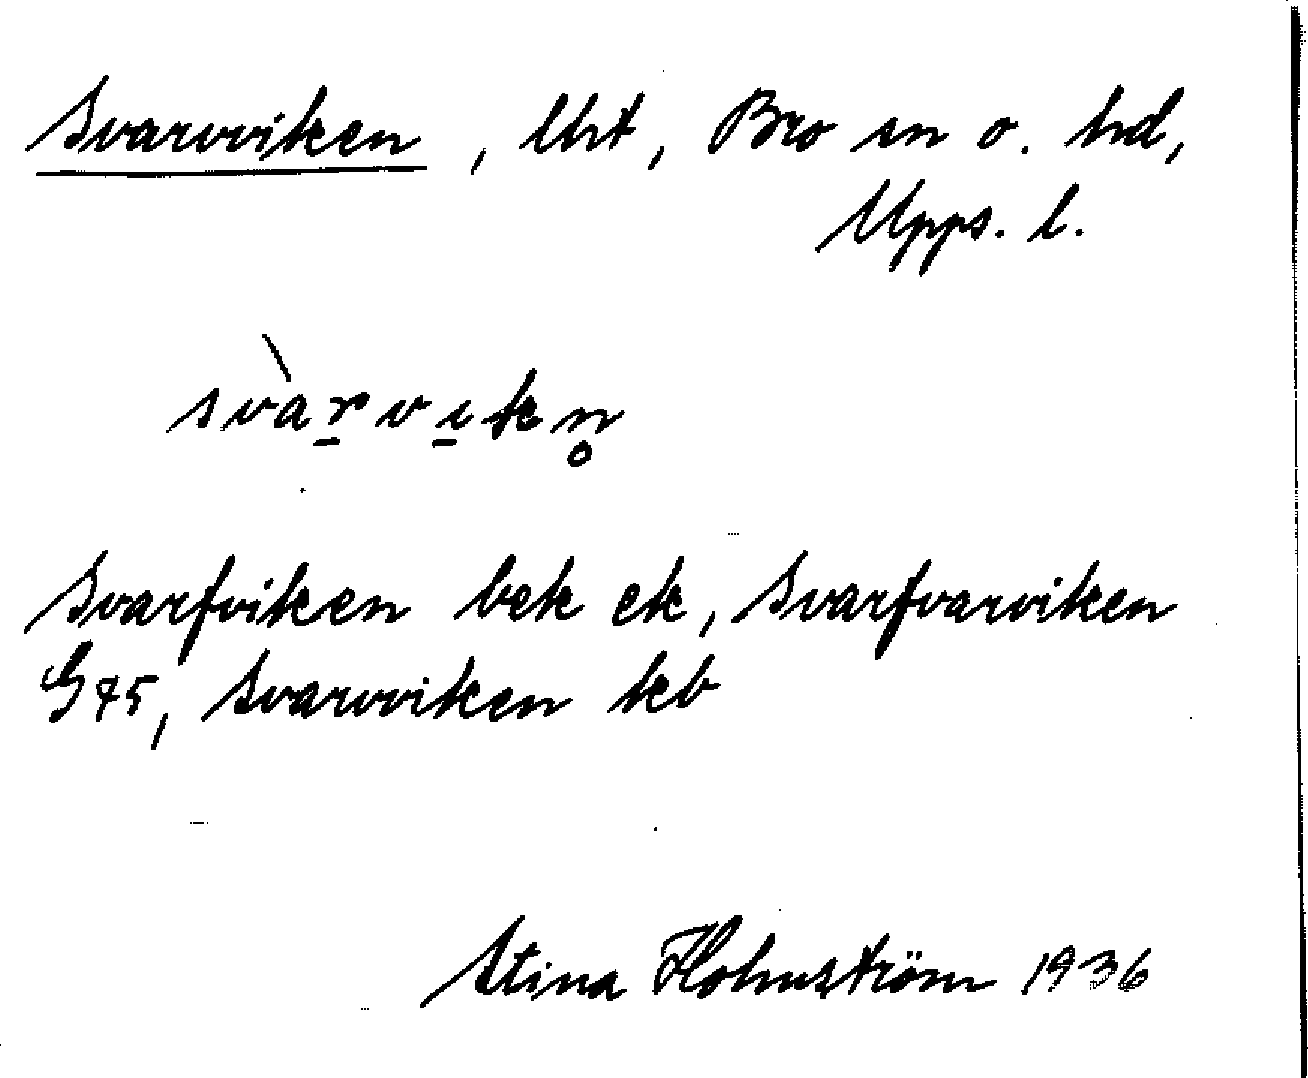 Svarvviken, lht, Bro sn o. hd,
Upps. l.
svàr̲vi̲kn̥
Svarfviken bek ek, Svarfvarviken
G 75, Svarvviken kb
Stina Holmström 1936